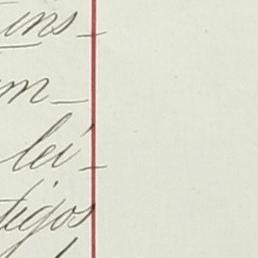 ins_
m_
lei_
tigos